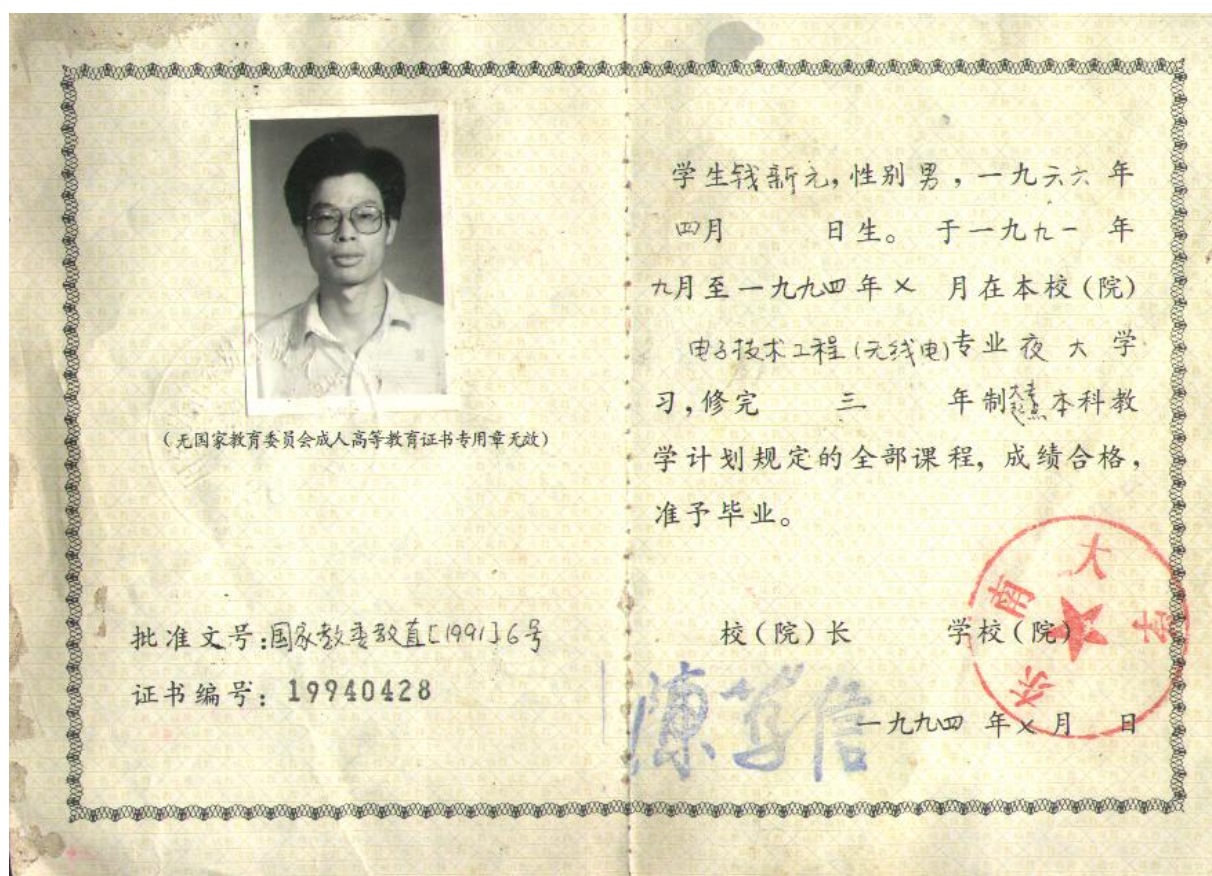 (无国家教育委员会成人高等教育证书专用章无效)
批准文号:国家教委教直[1991]6号
证书编号: 19940428
学生钱新元,性别男,一九六六年
四月 日生。于一九九一 年
九月至一九九四年× 月在本校(院)
电子技术工程(无线电)专业夜大学
习,修完 三 年制大专起点本科教
学计划规定的全部课程,成绩合格,
准予毕业。
校(院)长 学校(院)
陈笃信
东南大学
一九九四 年×月 日